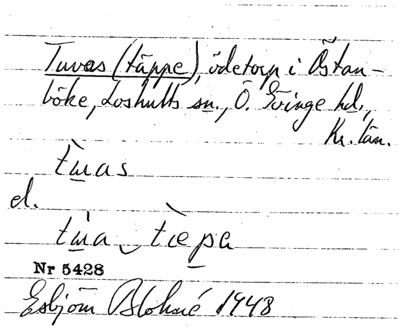 Tuvas (täppe), ödetorp i Östan-
böke, Loshults sn., Ö. Göinge hd.,
Kr. län.
tuas
el.
tua tepa
Nr 5428
Esbjörn Blohmé 1948